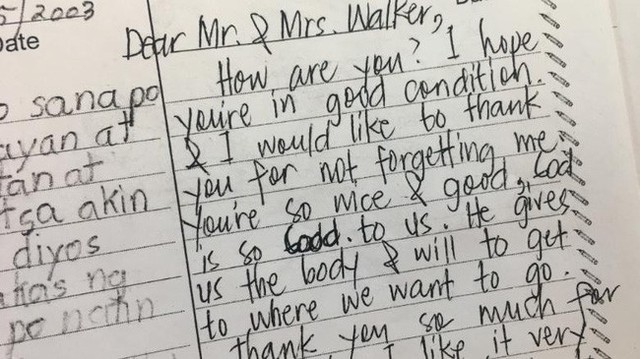 5/2003
Date
o sana po
ayan at
tan at
tsa akin
diyos
has ng
po natin
Dear Mr. & Mrs. Walker,
How are you? I hope
you're in good condition.
& I would like to thank
you for not forgetting me,
You're so nice & good, God
is so Good. to us. He gives
us the body & will to get
to where we want to go.
thank you so much for
I like it very